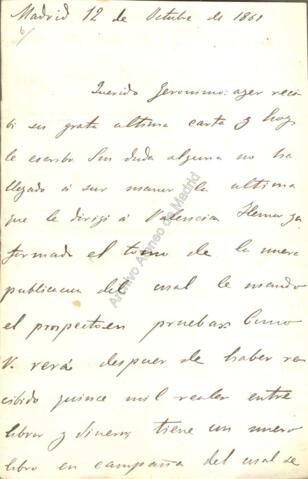 Madrid 12 de Octubre de 1861
Querido Geronimo: ayer reci
bi su grata ultima carta y hoy
le escribo. Sin duda alguna no ha
llegado á sus manos la ultima
que le dirigi á Valencia. Hemos ya
formado el tomo de la nueva
publicacion del cual le mando
el prospecto en pruebas. Como
V. verá despues de haber re
cibido quince mil reales entre
libros y dinero, tiene un nuevo
libro en campaña del cual se
Archivo Ateneo de Madrid